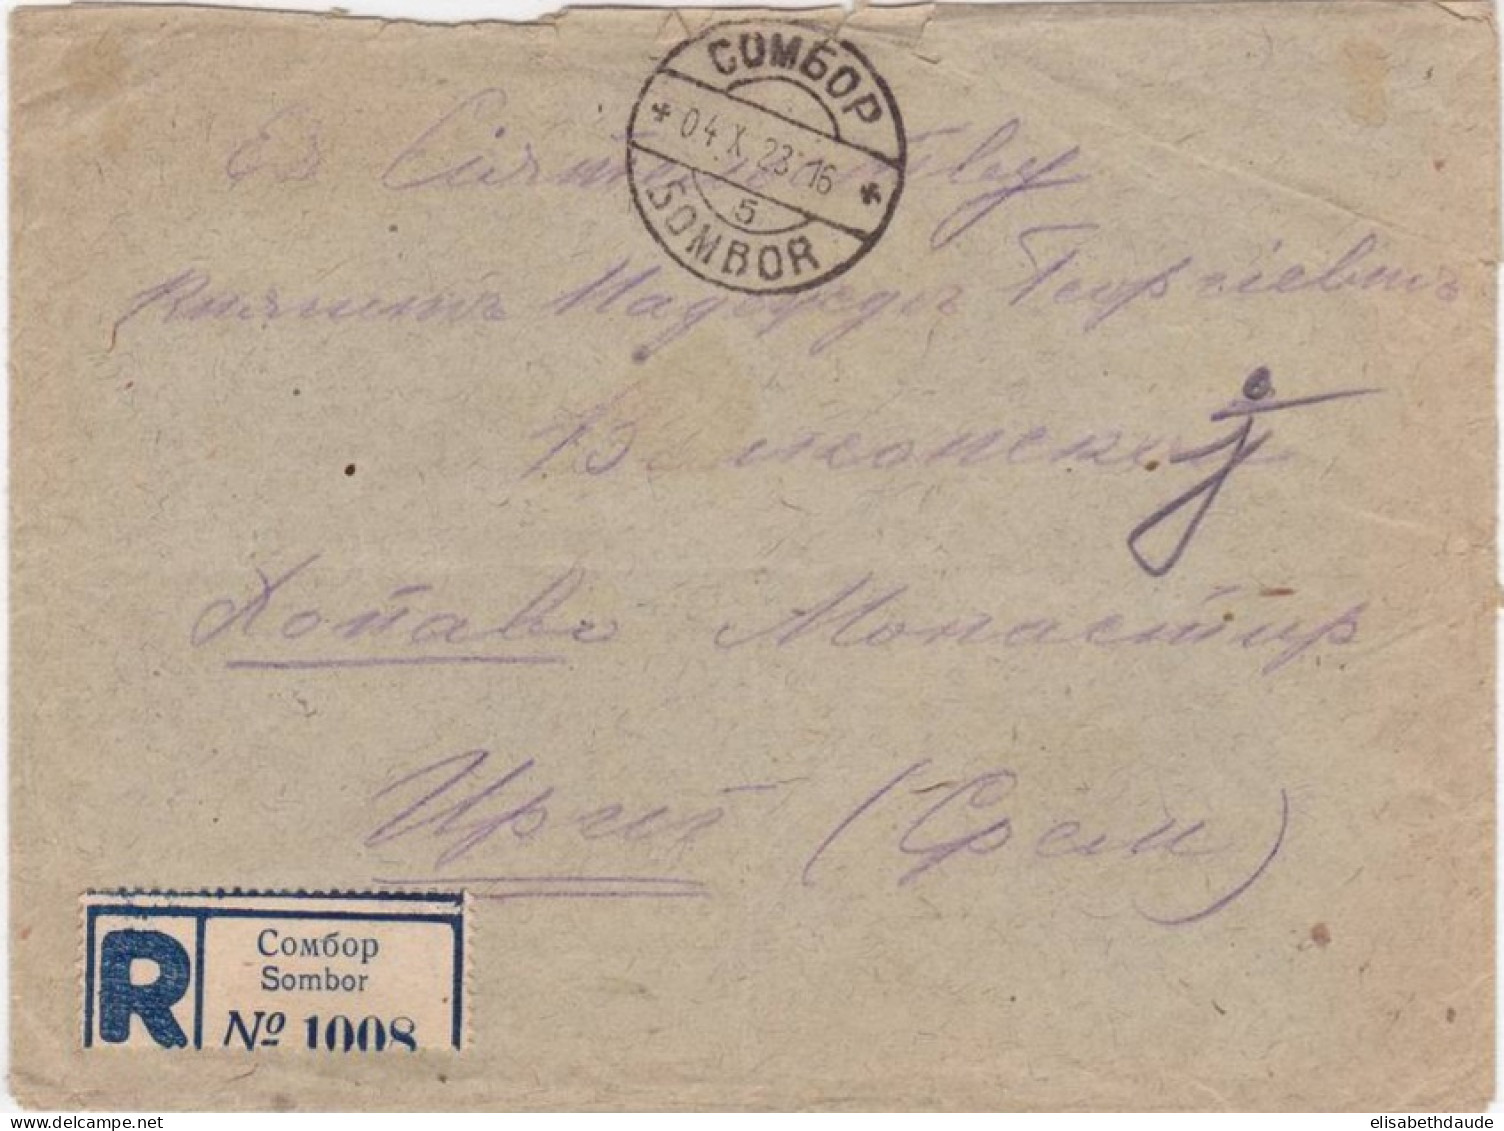 СОМБОР
04.X.23.16
5
SOMBOR
Ея Сіятельству
Княгинѣ Надеждѣ Георгіевнѣ
Хопово Монастир
Ириг (Срем)
R
Сомбор
Sombor
№ 1008
elisabethdaude